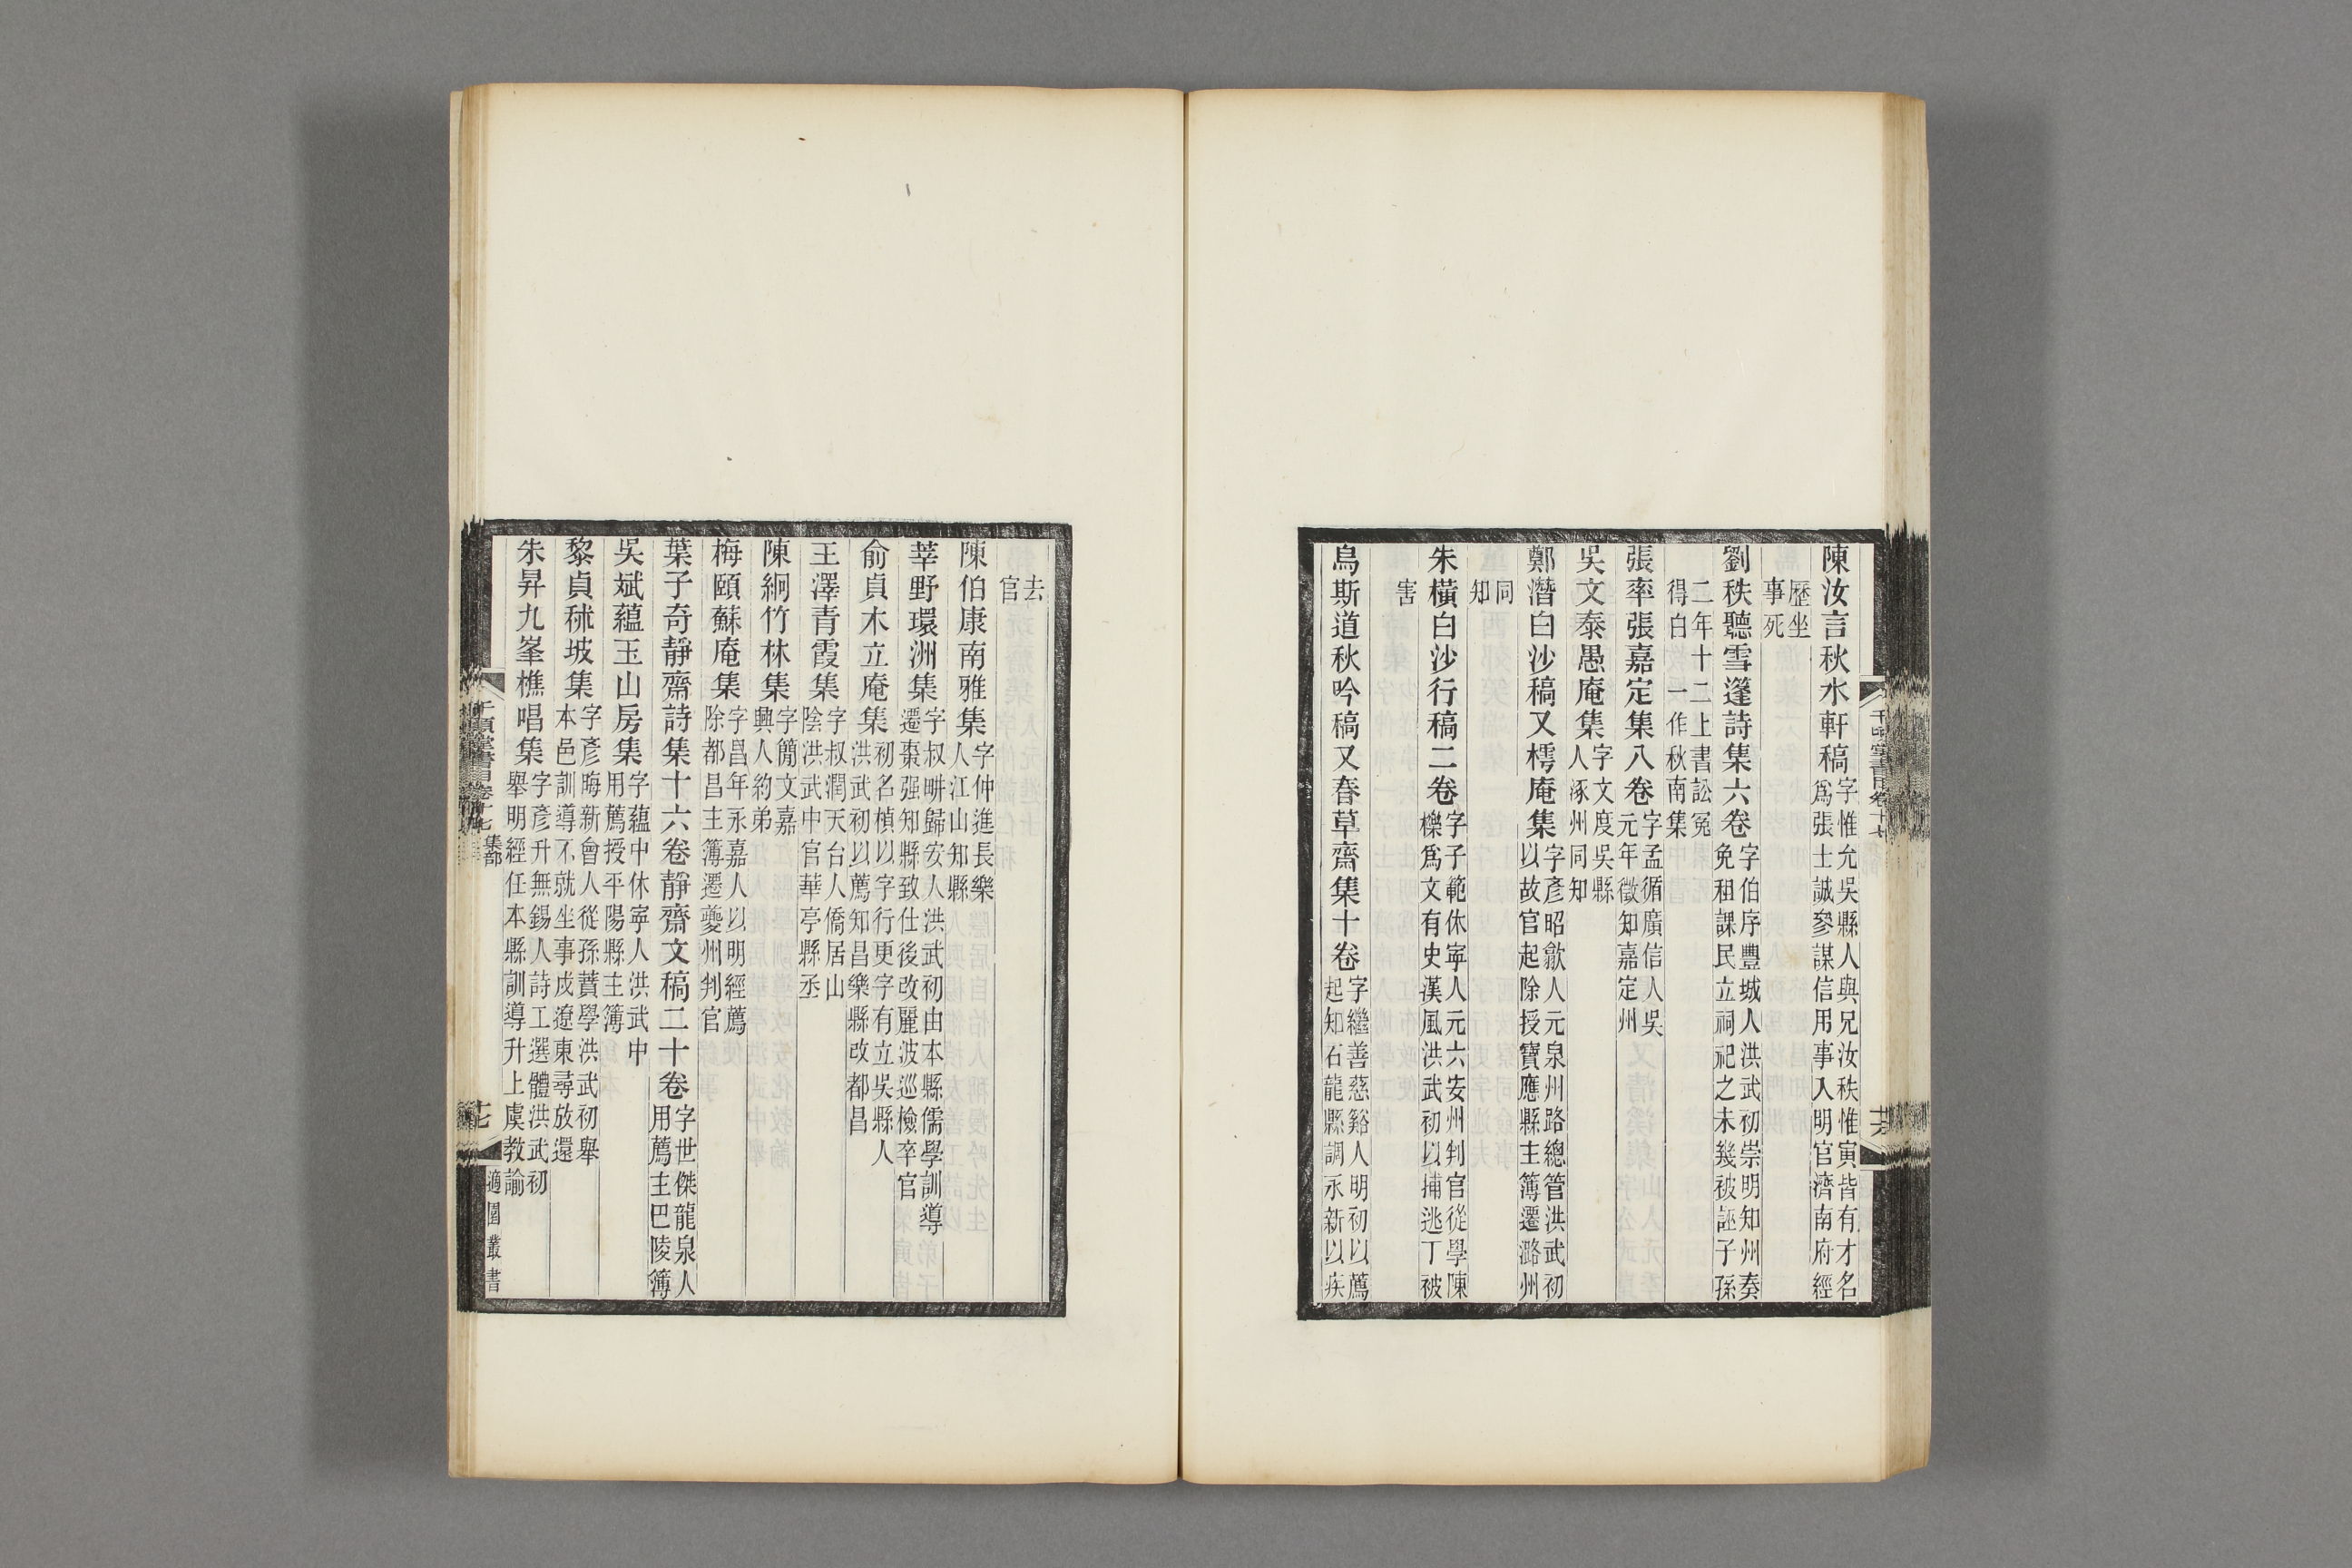 陳汝言秋水軒稿字惟允吳縣人與兄汝秩惟寅皆有才名爲張士誠參謀信用事入明官濟南府經
歷坐事死
劉秩聽雪篷詩集六卷字伯序豐城人洪武初崇明知州奏免租課民立祠祀之未幾被誣子孫
二年十二上書訟冤得白一作秋南集
張率張嘉定集八卷字孟循廣信人吳元年徵知嘉定州
吳文泰愚庵集字文度吳縣人涿州同知
鄭潛白沙稿又樗庵集字彥昭歙人元泉州路總管洪武初以故官起除授寶應縣主簿遷潞州
同知
朱橫白沙行稿二卷字子範休寧人元六安州判官從學陳櫟爲文有史漢風洪武初以捕逃丁被
害
烏斯道秋吟稿又春草齋集十卷字繼善慈谿人明初以薦起知石龍縣調永新以疾
千頃堂書目卷十七
十六
去官
陳伯康南雅集字仲進長樂人江山知縣
莘野環洲集字叔畊歸安人洪武初由本縣儒學訓導遷棗强知縣致仕後改麗波巡檢卒官
俞貞木立庵集初名楨以字行更字有立吳縣人洪武初以薦知昌樂縣改都昌
王澤青霞集字叔潤天台人僑居山陰洪武中官華亭縣丞
陳絅竹林集字簡文嘉興人約弟
梅頤蘇庵集字昌年永嘉人以明經薦除都昌主簿遷夔州判官
葉子奇靜齋詩集十六卷靜齋文稿二十卷字世傑龍泉人用薦主巴陵簿
吳斌蘊玉山房集字蘊中休寧人洪武中用薦授平陽縣主簿
黎貞秫坡集字彥晦新會人從孫蕡學洪武初舉本邑訓導不就坐事戍遼東尋放還
朱昇九峯樵唱集字彥升無錫人詩工選體洪武初舉明經任本縣訓導升上虞教諭
千頃堂書目卷十七 集部
十七
適園叢書